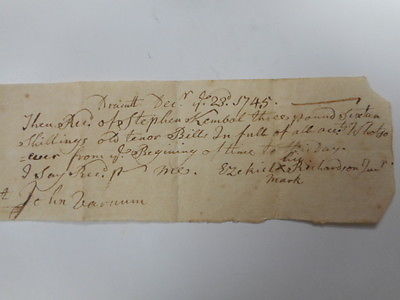 Dracutt Decr ye 23d 1745
Then Recd of Stephen Kembal three pound Sixten
Shillings old tenor Bills In full of all acts Whatso
=ever from ye Begining of time to this Day
I Say Recd pr me
his
Ezekiel X Richardson Junr
mark
John Varnum